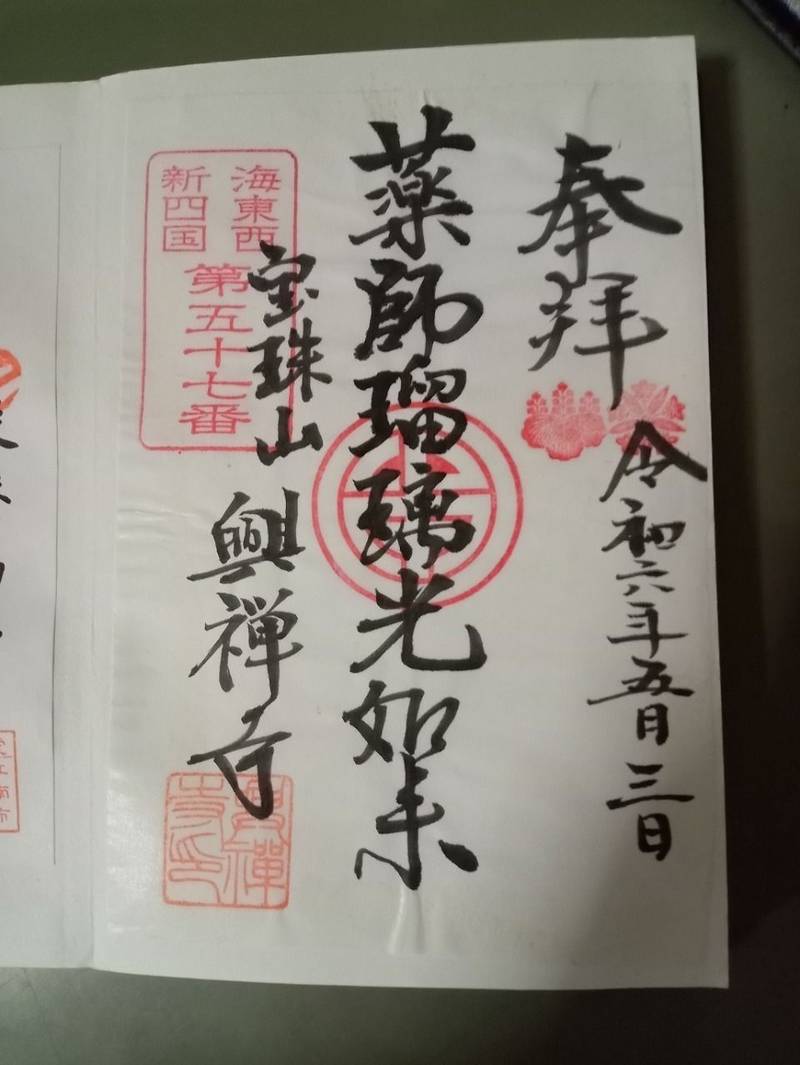 奉拝
令和六年五月三日
薬師瑠璃光如来
海東西
新四国
第五十七番
宝珠山
興禅寺